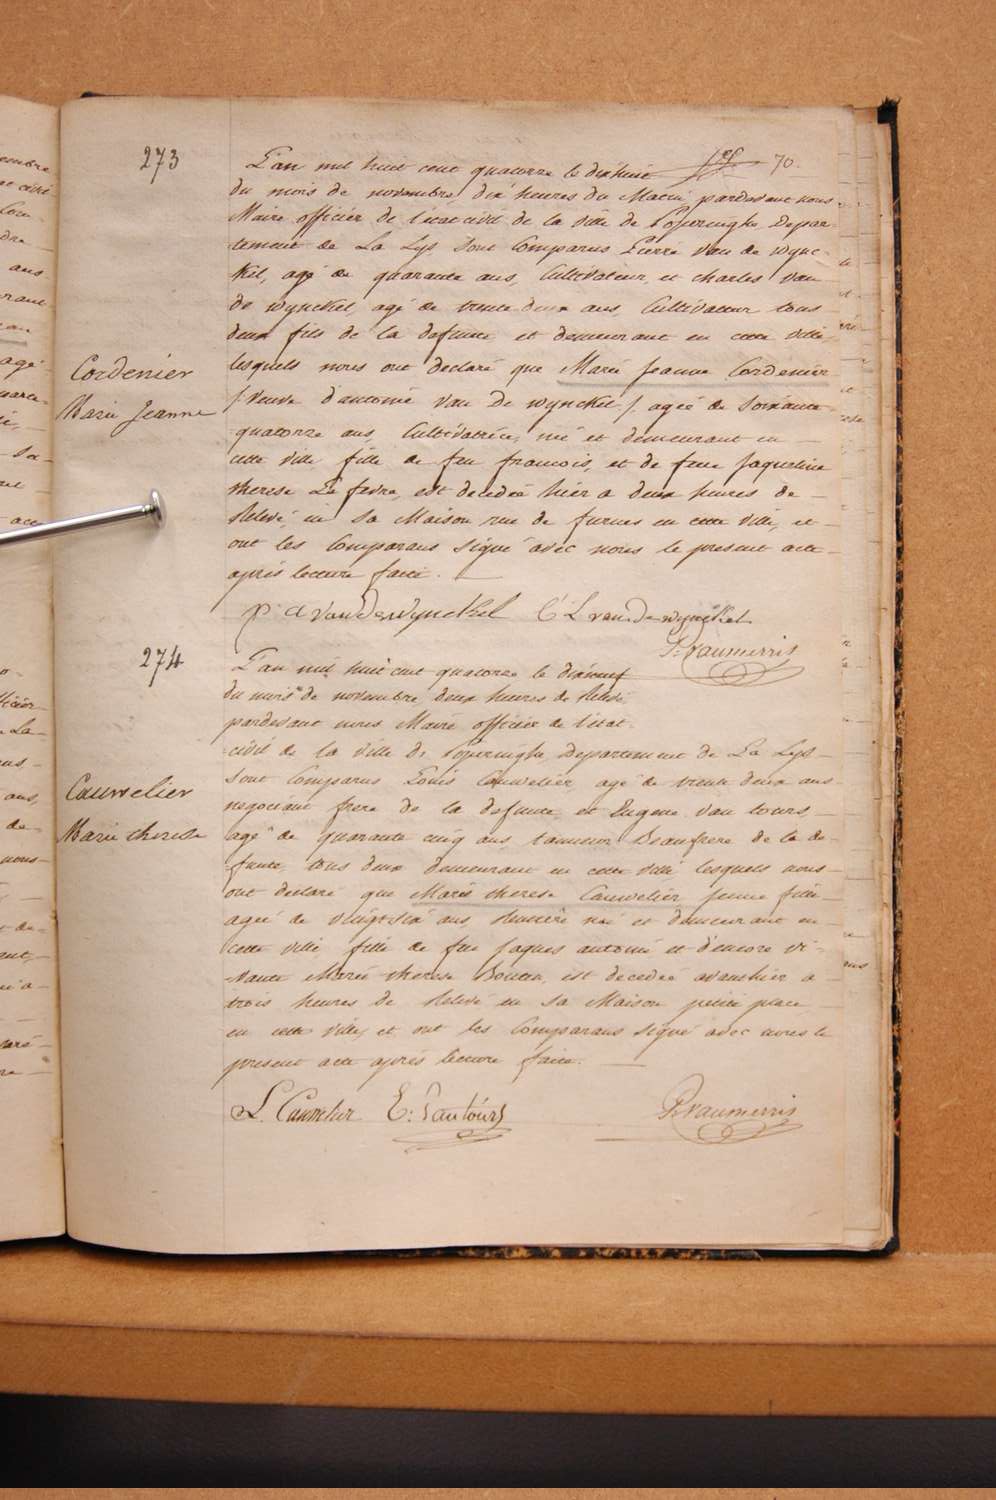 70.
273
L'an mil huit cent quatorze le dixhuit
du mois de novembre, dix heures du Matin pardevant nous
Maire officier de l'état civil de la ville de Poperinghe Depar-
tement de La Lys Sont Comparus Pierre Van de Wync-
kel, agé de quarante ans, Cultivateur, et Charles Van
de Wynckel, agé de trente deux ans, Cultivateur tous
deux fils de la defunte et demeurant en cette ville,
lesquels nous ont declaré que Marie Jeanne Cordenier
Cordenier
Marie Jeanne
/ Veuve d'antoine Van De Wynckel /, agée de Soixante
quatorze ans, Cultivatrice, née et demeurant en
cette ville fille de feu francois, et de feue Jaqueline
therese Le fevre, est decedée hier a deux heures de
Relevé, en Sa Maison rue de furnes en cette ville, et
ont les Comparans Signé avec nous le present acte
après lecture faite.
P: A VanDeWynckel C: L van De wynckel
P. Vaumerris
274
L'an mil huit cent quatorze le dixneuf
du mois de novembre, deux heures de Relevé
pardevant nous Maire officier de l'état
civil de la Ville de Poperinghe Departement de La Lys
Sont Comparus Louis Cauwelier agé de trente deux ans
negociant frere de la defunte, et Eugene Van tours,
agé de quarante cinq ans, tanneur Beaufrere de la de-
funte, tous deux demeurant en cette ville lesquels nous
ont declaré que Marie therese Cauwelier jeune fille
Cauwelier
Marie therese
agée de Vingt Six ans, née et demeurant en
cette ville fille de feu Jaques antoine et d'encore vi-
vante Marie therese, est decedée avanthier a
trois heures de Relevé en Sa Maison petite place
en cette ville, et ont les Comparans Signé avec nous le
present acte après lecture faite.
L. Cauwelier E: Vantours P. Vaumerris